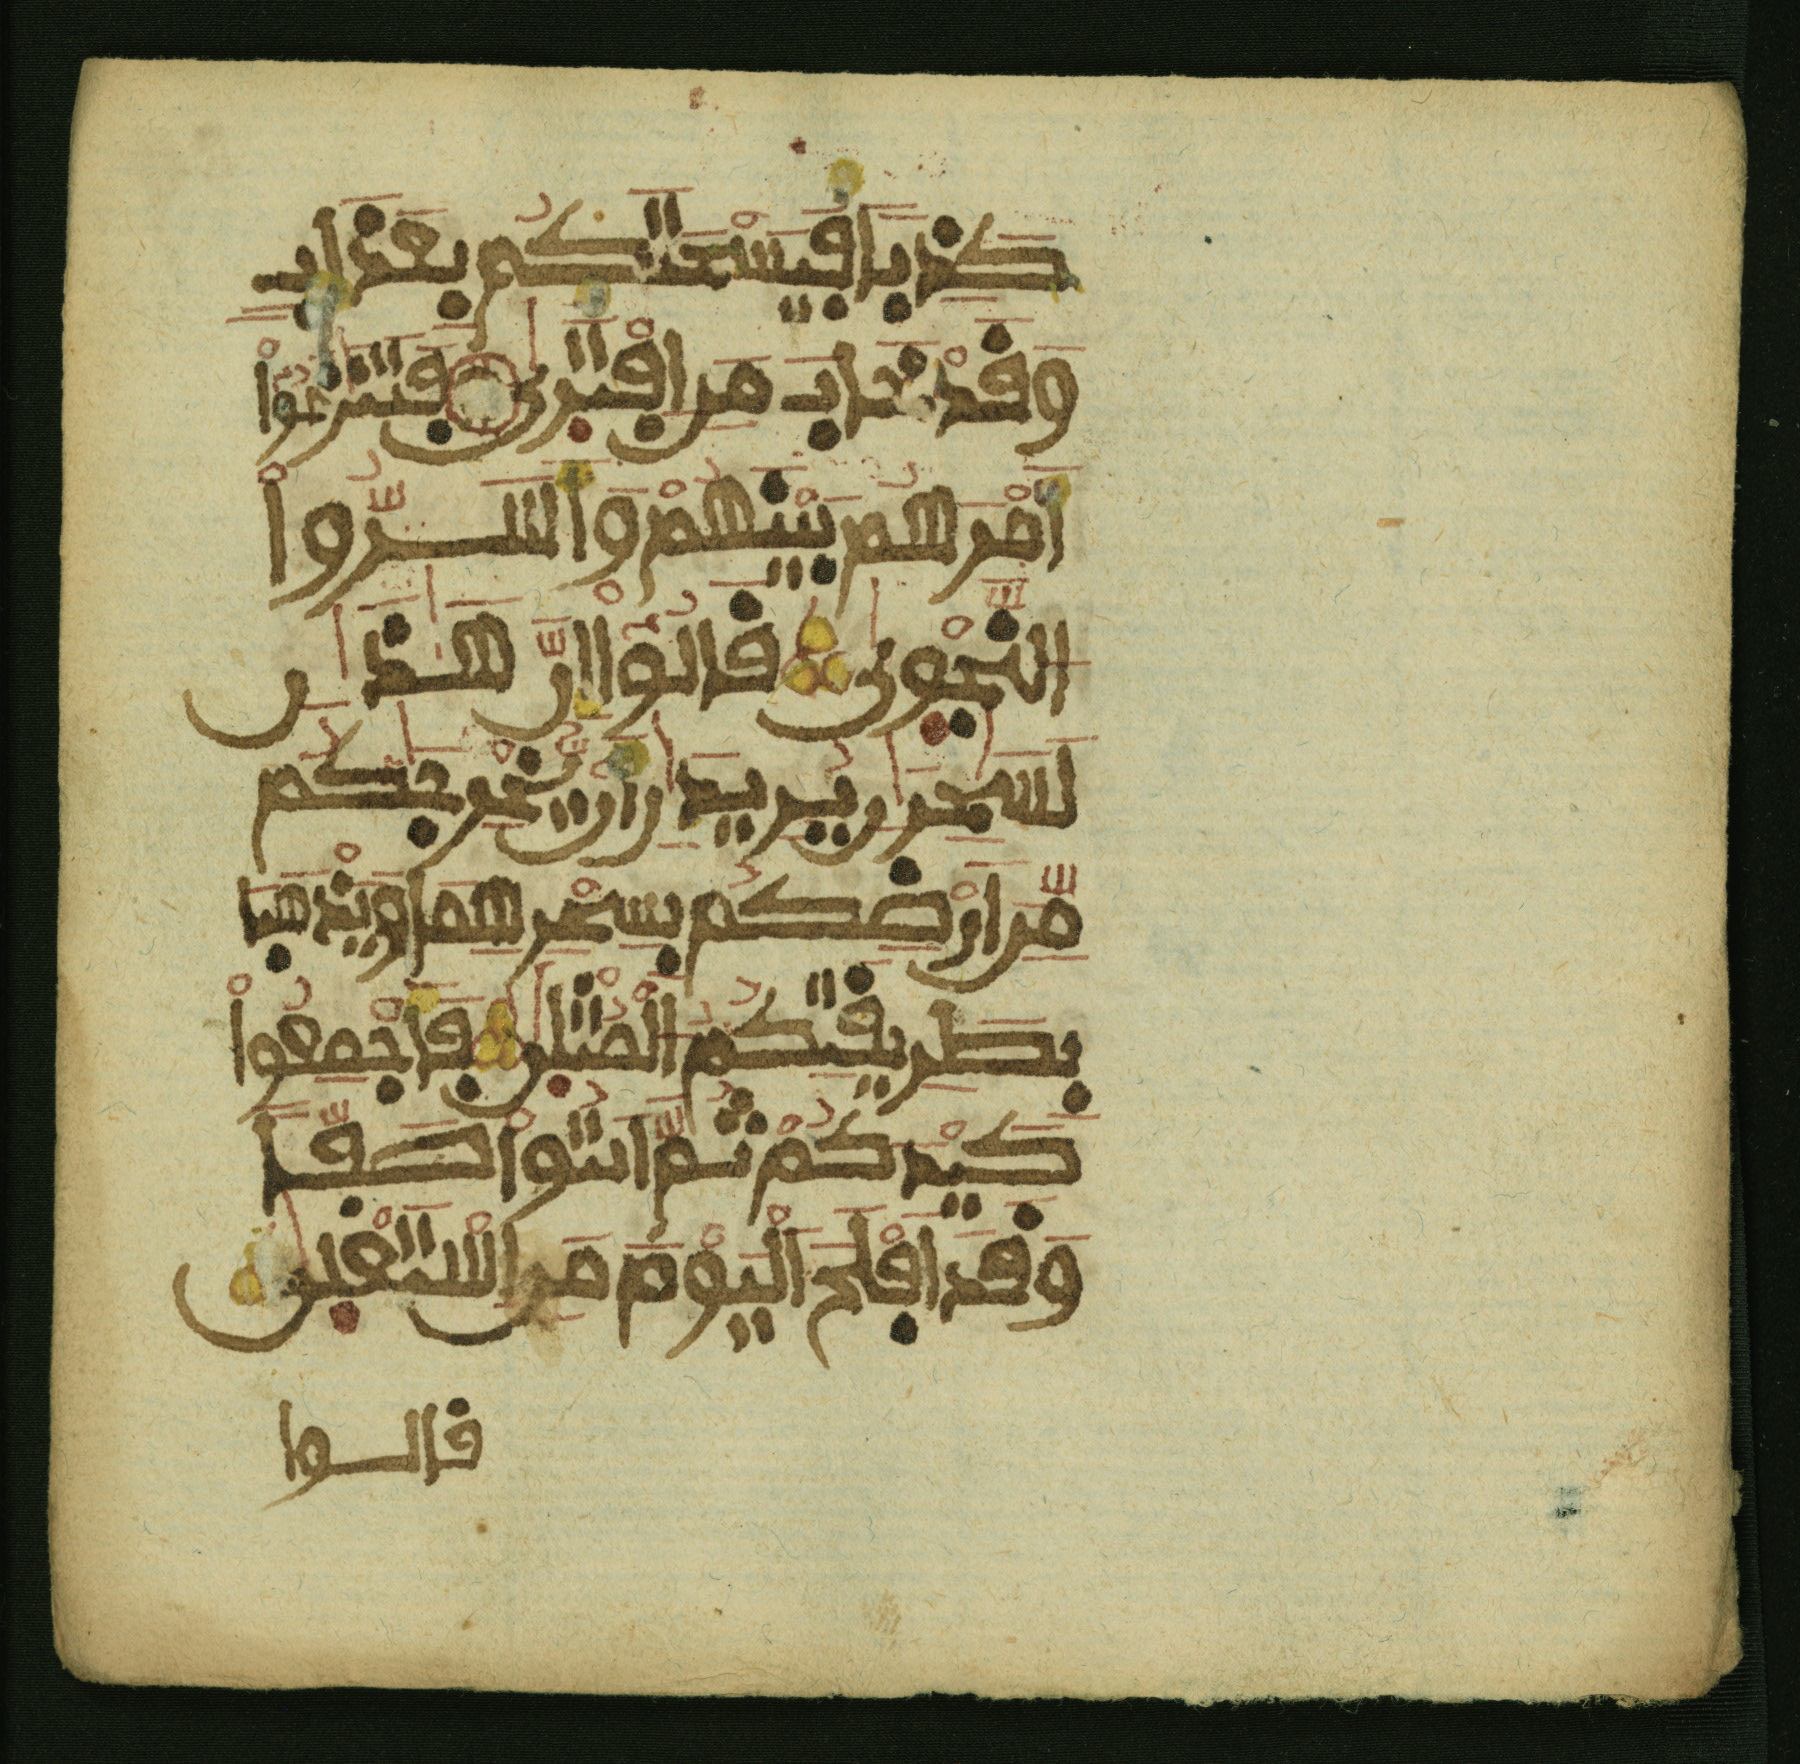 كَذِبًا فَيَسْحَتَكُم بِعَذَابٍ
وَقَدْ خَابَ مَنِ افْتَرَىٰ فَتَنَٰزَعُوا
أَمْرَهُم بَيْنَهُمْ وَأَسَرُّوا
النَّجْوَىٰ قَالُوا إِنَّ هَٰذَٰنِ
لَسَٰحِرَٰنِ يُرِيدَٰنِ أَنْ يُّخْرِجَٰكُم
مِّنَ اَرْضِكُم بِسِحْرِهِمَا وَيَذْهَبَا
بِطَرِيقَتِكُمُ الْمُثْلَىٰ فَأَجْمِعُوا
كَيْدَكُمْ ثُمَّ ائْتُوا صَفًّا
وَقَدَ اَفْلَحَ الْيَوْمَ مَنِ اسْتَعْلَىٰ
قالوا